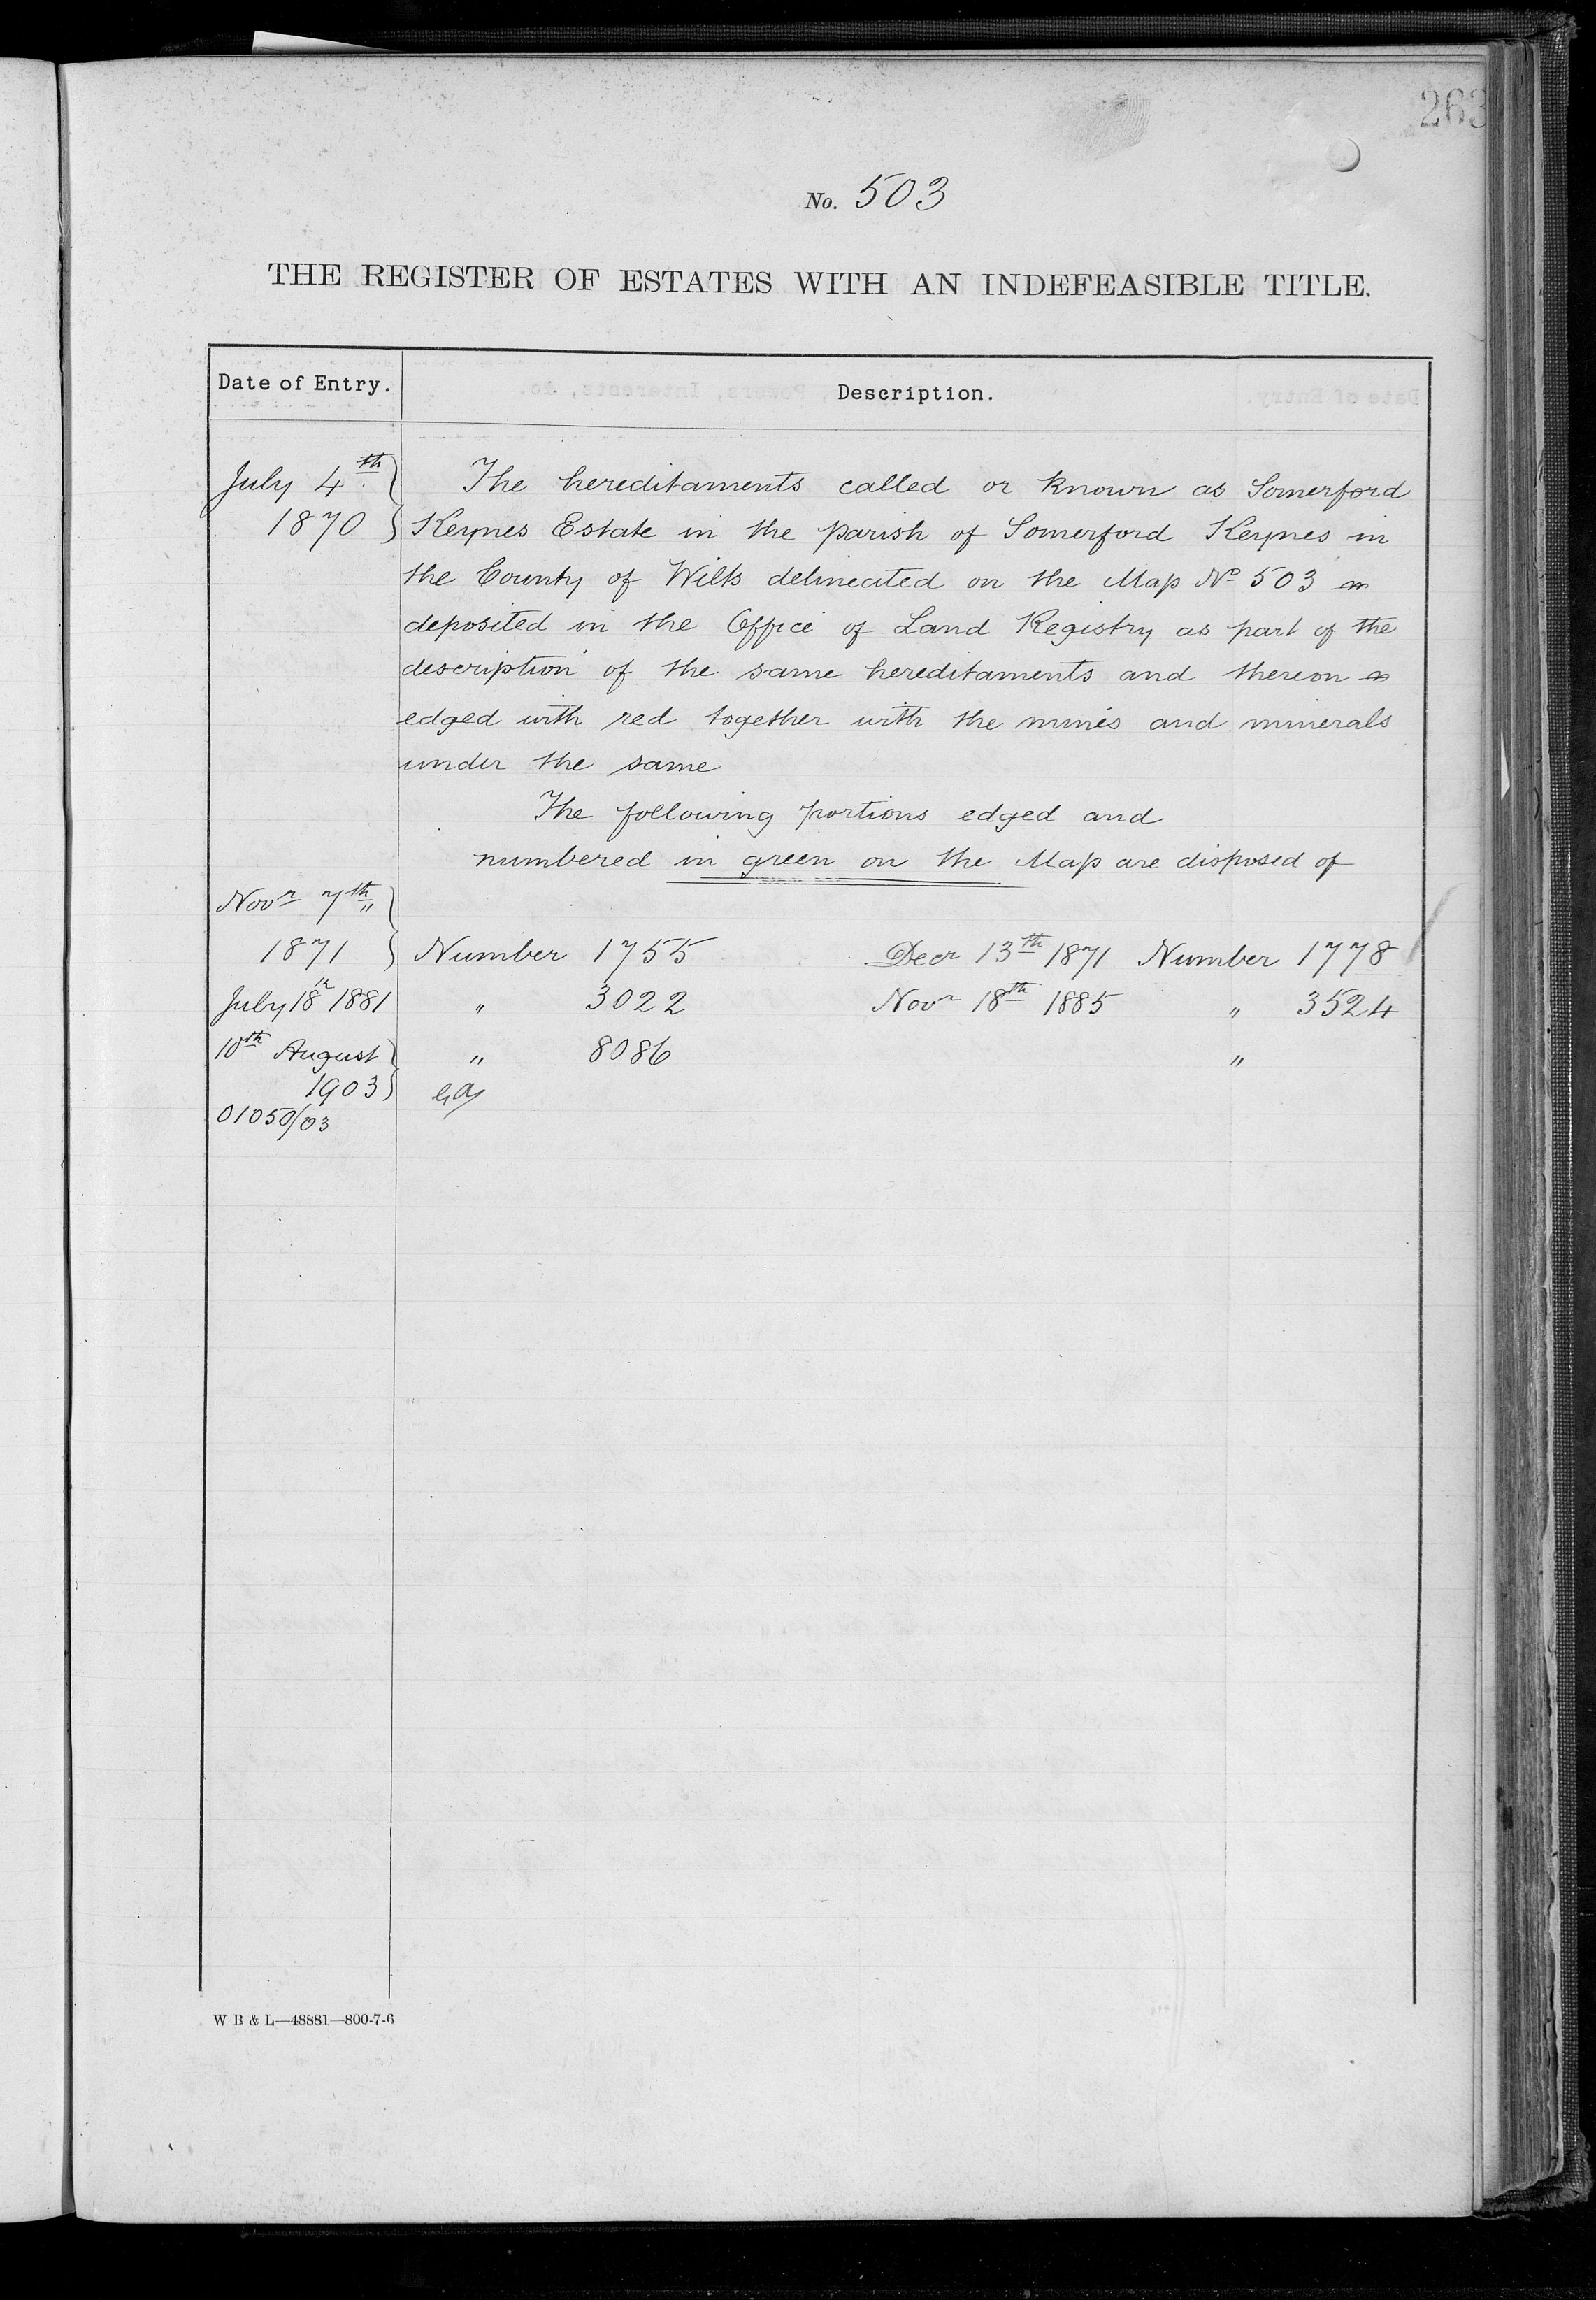 263
No. 503
THE REGISTER OF ESTATES WITH AN INDEFEASIBLE TITLE.
Date of Entry. Description.
July 4th The hereditaments called or known as Somerford
1870 Keynes Estate in the parish of Somerford Keynes in
the County of Wilts delineated on the Map No 503
deposited in the Office of Land Registry as part of the
description of the same hereditaments and thereon
edged with red together with the mines and minerals
under the same
The following portions edged and
numbered in green on the Map are disposed of
Novr 7th
1871 Number 1755 Decr 13th 1871 Number 1778
July 18th 1881 " 3022 Novr 18th 1885 " 3524
10th August " 8086 "
1903
01050/03
W B & L—48881—800-7-6